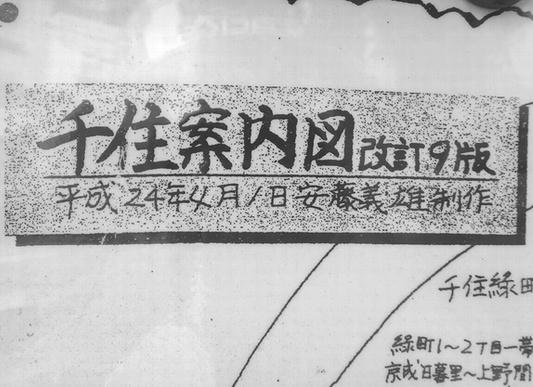 千住案内図改訂9版
平成24年4月1日安藤義雄制作
千住緑町
緑町1〜2丁目一帯
京成日暮里〜上野間